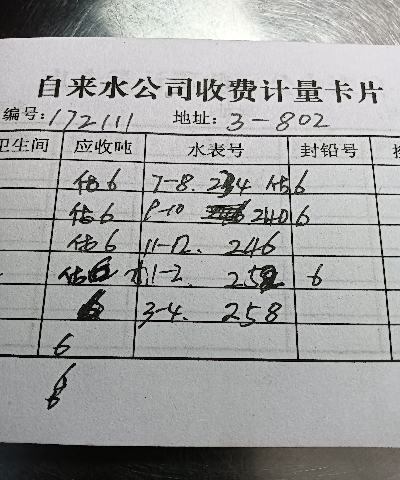 自来水公司收费计量卡片
编号:172111 地址:3-802
卫生间 应收吨 水表号 封铅号
估6 7-8. 234 估6
估6 9-10 240 6
估6 11-12. 246
估6 1-2. 252 6
6 3-4. 258
6
6